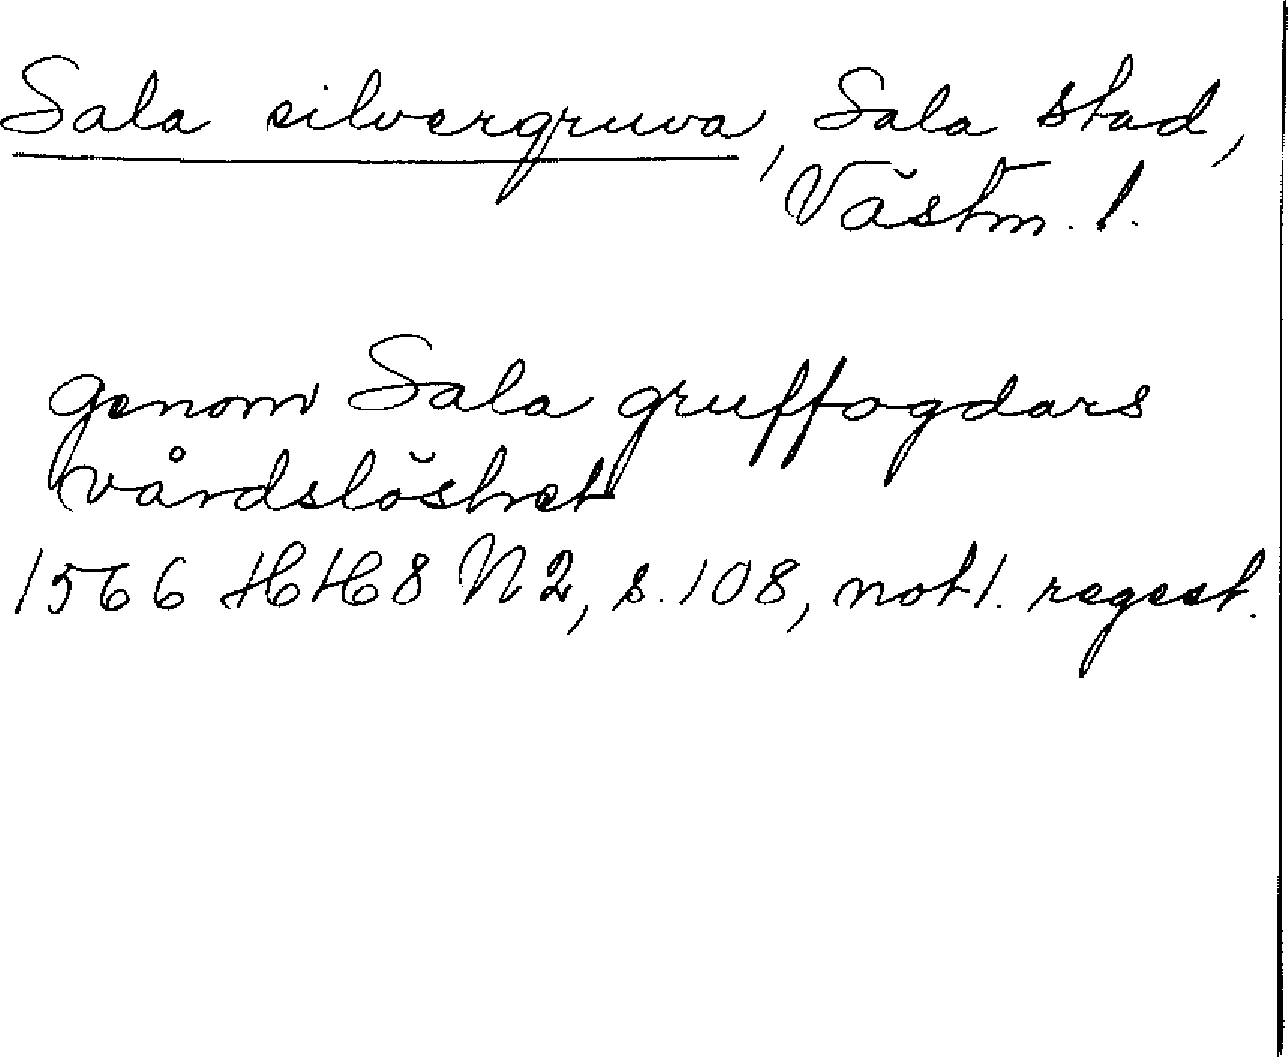 Sala silvergruva, Sala stad,
Västm. l.
genom Sala gruffogdars
vårdslöshet
1566 HH8 N2, s.108, not 1. regest.